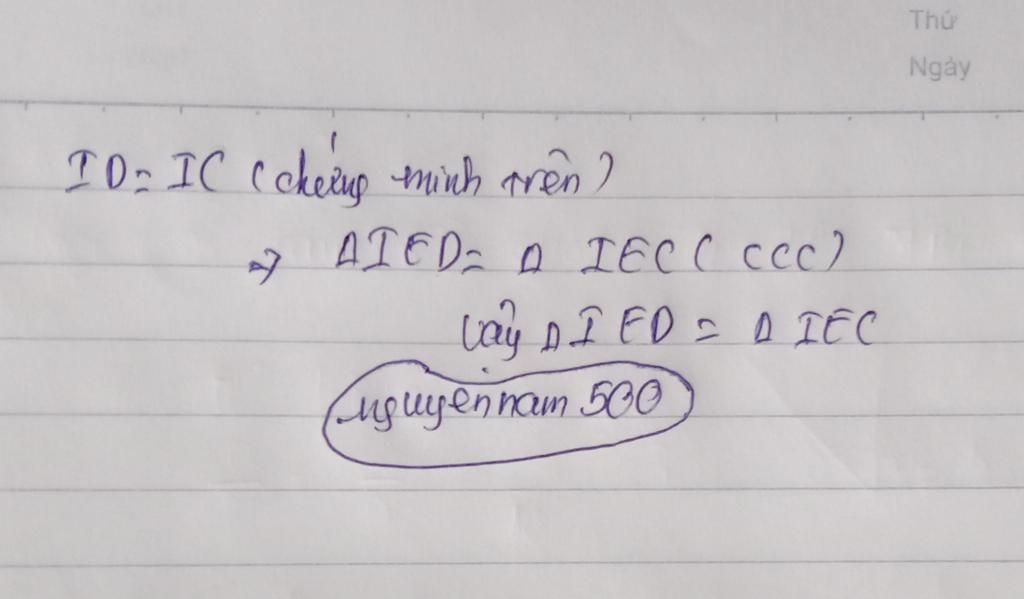 Thứ
Ngày
ID = IC (chứng minh trên)
=> Δ IED = Δ IEC (ccc)
Vậy Δ IED = Δ IEC
nguyennam 500